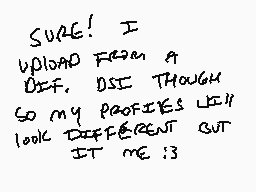 SURE! I
UPLOAD FROM A
DIF. DSI THOUGH
SO MY PROFILES WIll
look DIFFERENT BUT
IT ME :3